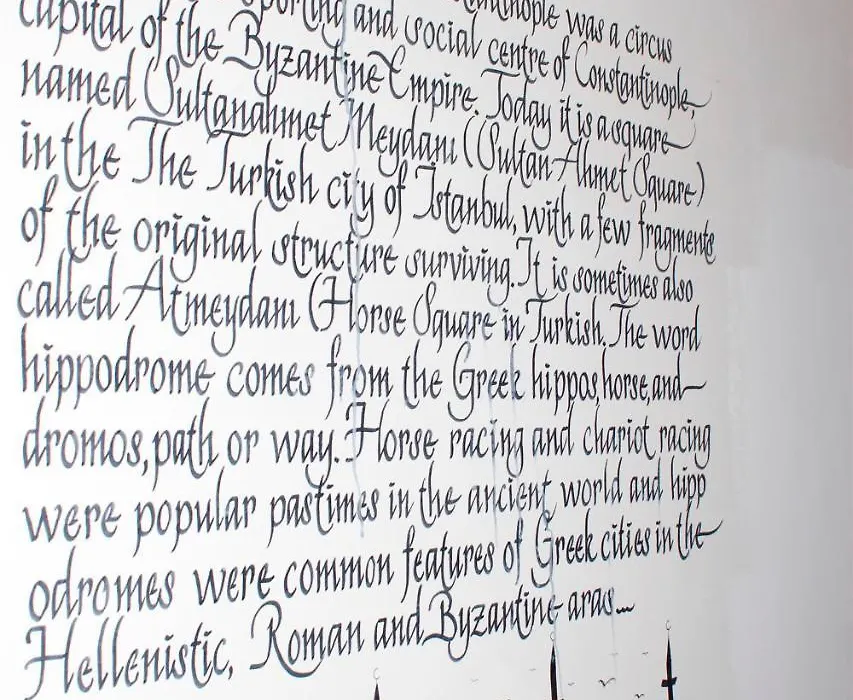 was a circus
sporting and social centre of Constantinople,
capital of the Byzantine Empire. Today it is a square
named Sultanahmet Meydanı (Sultan Ahmet Square)
in the The Turkish city of Istanbul, with a few fragments
of the original structure surviving. It is sometimes also
called Atmeydanı (Horse Square in Turkish. The word
hippodrome comes from the Greek hippos, horse, and
dromos, path or way. Horse racing and chariot racing
were popular pastimes in the ancient world and hipp
odromes were common features of Greek cities in the
Hellenistic, Roman and Byzantine aras...